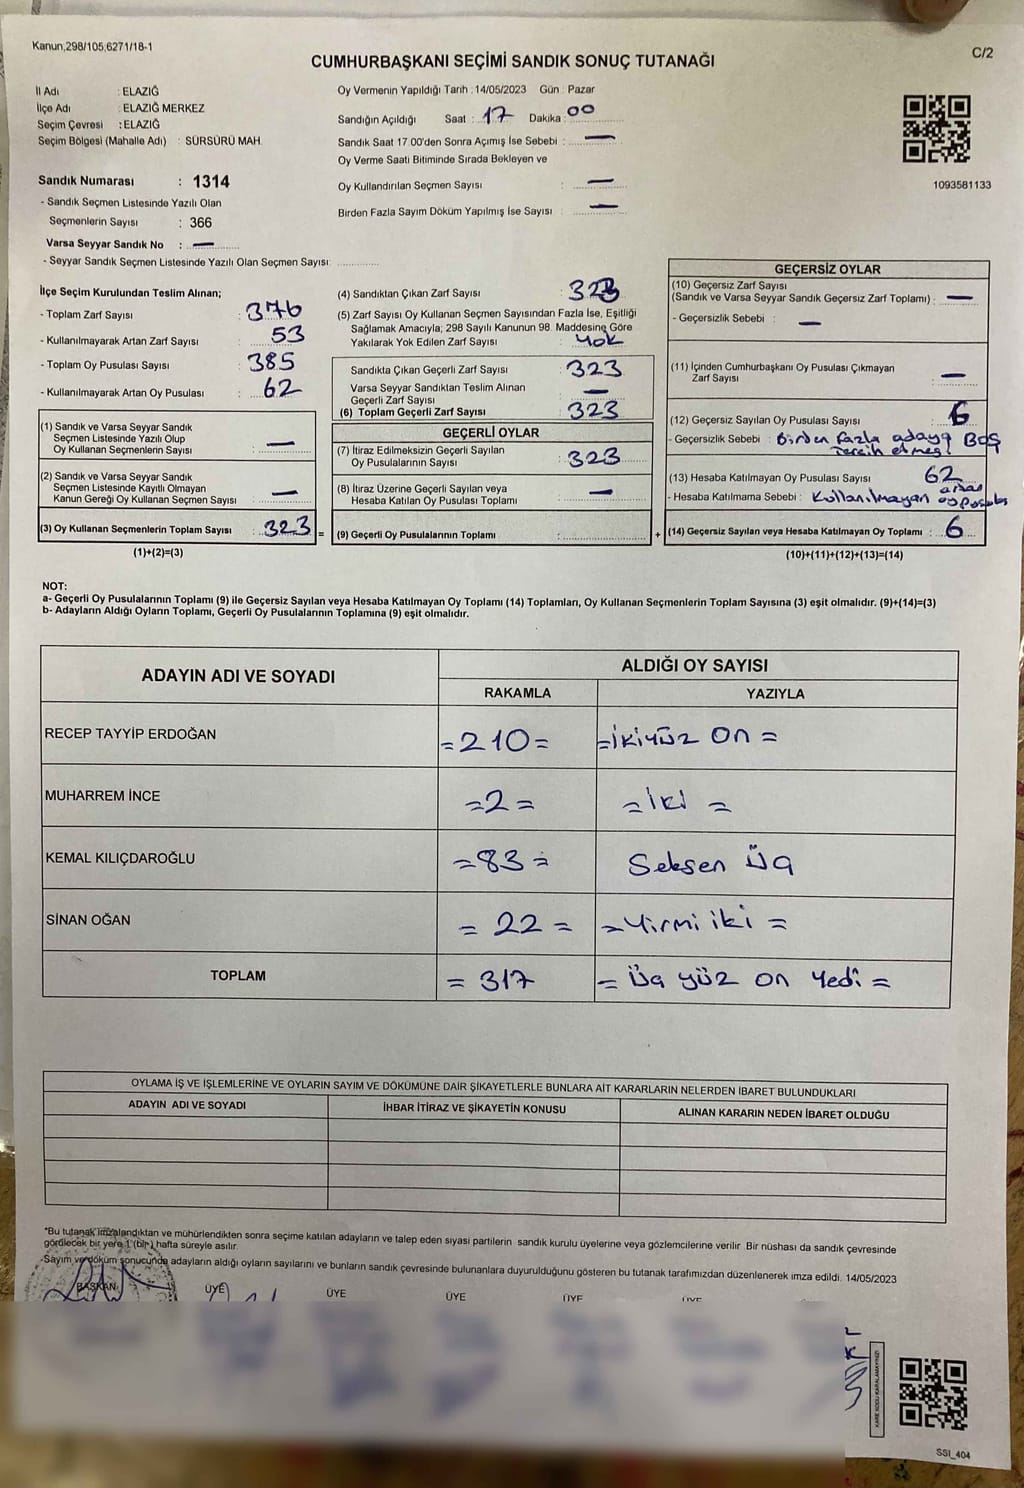 Kanun,298/105,6271/18-1
C/2
CUMHURBAŞKANI SEÇİMİ SANDIK SONUÇ TUTANAĞI
İl Adı : ELAZIĞ
İlçe Adı : ELAZIĞ MERKEZ
Seçim Çevresi : ELAZIĞ
Seçim Bölgesi (Mahalle Adı) : SÜRSÜRÜ MAH.
Sandık Numarası : 1314
- Sandık Seçmen Listesinde Yazılı Olan
Seçmenlerin Sayısı : 366
Varsa Seyyar Sandık No : —
- Seyyar Sandık Seçmen Listesinde Yazılı Olan Seçmen Sayısı:
Oy Vermenin Yapıldığı Tarih : 14/05/2023 Gün : Pazar
Sandığın Açıldığı Saat : 17 Dakika : 00
Sandık Saat 17.00'den Sonra Açımış İse Sebebi : —
Oy Verme Saati Bitiminde Sırada Bekleyen ve
Oy Kullandırılan Seçmen Sayısı : —
Birden Fazla Sayım Döküm Yapılmış İse Sayısı : —
1093581133
İlçe Seçim Kurulundan Teslim Alınan;
- Toplam Zarf Sayısı : 376
- Kullanılmayarak Artan Zarf Sayısı : 53
- Toplam Oy Pusulası Sayısı : 385
- Kullanılmayarak Artan Oy Pusulası : 62
(1) Sandık ve Varsa Seyyar Sandık
Seçmen Listesinde Yazılı Olup
Oy Kullanan Seçmenlerin Sayısı : —
(2) Sandık ve Varsa Seyyar Sandık
Seçmen Listesinde Kayıtlı Olmayan
Kanun Gereği Oy Kullanan Seçmen Sayısı : —
(3) Oy Kullanan Seçmenlerin Toplam Sayısı : 323 =
(1)+(2)=(3)
(4) Sandıktan Çıkan Zarf Sayısı : 323
(5) Zarf Sayısı Oy Kullanan Seçmen Sayısından Fazla İse, Eşitliği
Sağlamak Amacıyla; 298 Sayılı Kanunun 98. Maddesine Göre
Yakılarak Yok Edilen Zarf Sayısı : YOK
Sandıkta Çıkan Geçerli Zarf Sayısı : 323
Varsa Seyyar Sandıktan Teslim Alınan
Geçerli Zarf Sayısı : —
(6) Toplam Geçerli Zarf Sayısı : 323
GEÇERLİ OYLAR
(7) İtiraz Edilmeksizin Geçerli Sayılan
Oy Pusulalarının Sayısı : 323
(8) İtiraz Üzerine Geçerli Sayılan veya
Hesaba Katılan Oy Pusulası Toplamı : —
(9) Geçerli Oy Pusulalarının Toplamı : +
GEÇERSİZ OYLAR
(10) Geçersiz Zarf Sayısı
(Sandık ve Varsa Seyyar Sandık Geçersiz Zarf Toplamı) : —
- Geçersizlik Sebebi : —
(11) İçinden Cumhurbaşkanı Oy Pusulası Çıkmayan
Zarf Sayısı : —
(12) Geçersiz Sayılan Oy Pusulası Sayısı : 6
- Geçersizlik Sebebi : Birden fazla adaya Boş
tercih etmesi
(13) Hesaba Katılmayan Oy Pusulası Sayısı : 62
- Hesaba Katılmama Sebebi : Kullanılmayan artan
oy pusulası
(14) Geçersiz Sayılan veya Hesaba Katılmayan Oy Toplamı : 6
(10)+(11)+(12)+(13)=(14)
NOT:
a- Geçerli Oy Pusulalarının Toplamı (9) ile Geçersiz Sayılan veya Hesaba Katılmayan Oy Toplamı (14) Toplamları, Oy Kullanan Seçmenlerin Toplam Sayısına (3) eşit olmalıdır. (9)+(14)=(3)
b- Adayların Aldığı Oyların Toplamı, Geçerli Oy Pusulalarının Toplamına (9) eşit olmalıdır.
ADAYIN ADI VE SOYADI ALDIĞI OY SAYISI
RAKAMLA YAZIYLA
RECEP TAYYİP ERDOĞAN =210= =ikiyüz on =
MUHARREM İNCE =2= =iki =
KEMAL KILIÇDAROĞLU =83= Seksen Üç
SİNAN OĞAN = 22 = =Yirmi iki =
TOPLAM = 317 = Üç yüz on Yedi =
OYLAMA İŞ VE İŞLEMLERİNE VE OYLARIN SAYIM VE DÖKÜMÜNE DAİR ŞİKAYETLERLE BUNLARA AİT KARARLARIN NELERDEN İBARET BULUNDUKLARI
ADAYIN ADI VE SOYADI İHBAR İTİRAZ VE ŞİKAYETİN KONUSU ALINAN KARARIN NEDEN İBARET OLDUĞU
*Bu tutanak imzalandıktan ve mühürlendikten sonra seçime katılan adayların ve talep eden siyasi partilerin sandık kurulu üyelerine veya gözlemcilerine verilir. Bir nüshası da sandık çevresinde
görülecek bir yere 1 (bir) hafta süreyle asılır.
Sayım ve döküm sonucunda adayların aldığı oyların sayılarını ve bunların sandık çevresinde bulunanlara duyurulduğunu gösteren bu tutanak tarafımızdan düzenlenerek imza edildi. 14/05/2023
BAŞKAN ÜYE ÜYE ÜYE ÜYE ÜYE
KARE KODU KARALAMAYINIZ!
SSI_404